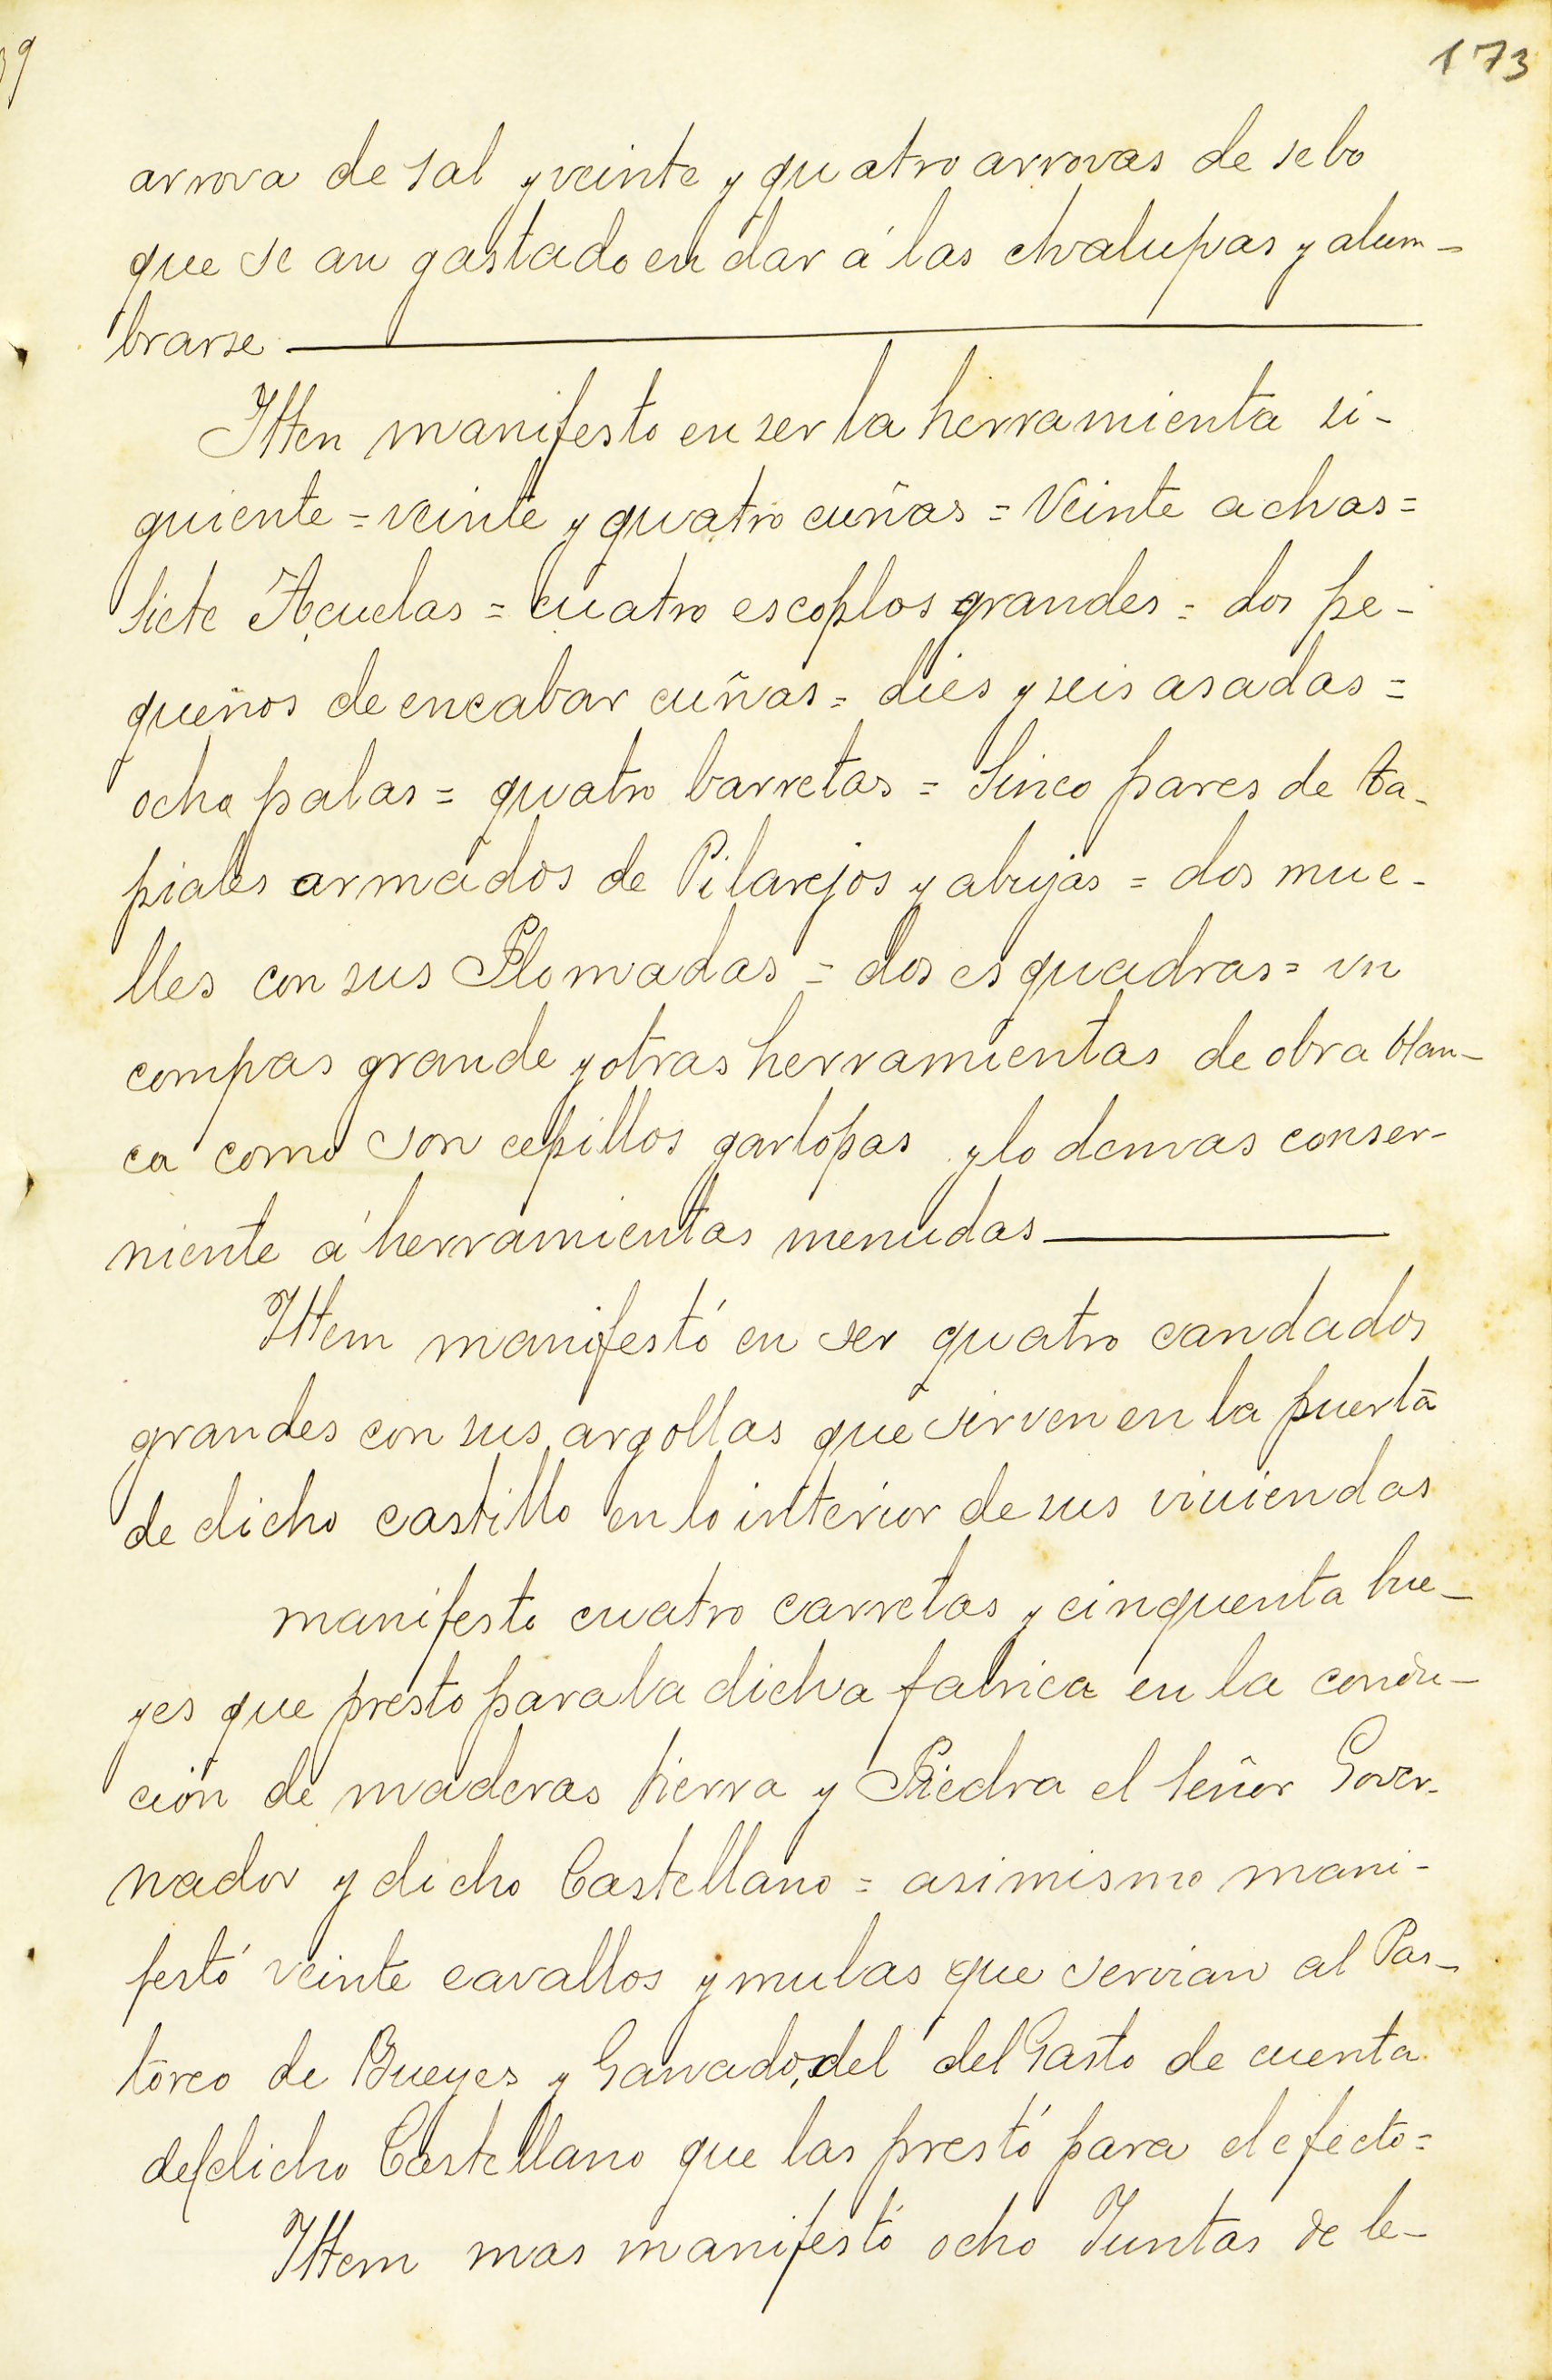 173
arrova de sal y veinte y quatro arrovas de sebo
que se an gastado en dar á las chalupas y alum-
brarse
Itten manifesto en ser la herramienta si-
guiente = veinte y quatro cuñas = Veinte achas =
siete Açuelas = cuatro escoplos grandes = dos pe-
queños de encabar cuñas = dies y seis asadas =
ocho palas = quatro barretas = Sinco pares de ta-
piales armados de Pilarejos y abujas = dos mue-
lles con sus Plomadas = dos esquadras = vn
compas grande y otras herramientas de obra blan-
ca como son cepillos garlopas y lo demas conser-
niente á herramientas menudas
Ittem manifestó en ser quatro candados
grandes con sus argollas que sirven en la puerta
de dicho castillo en lo interior de sus viuiendas
manifesto cuatro carretas y cinquenta bue-
yes que presto para la dicha fabrica en la condu-
ción de maderas tierra y Piedra el señor Gover-
nador y dicho Castellano = asimismo mani-
festó veinte cavallos y mulas que servian al Pas-
toreo de Bueyes y Ganado, del del Gasto de cuenta
del dicho Castellano que las prestó para el efecto =
Ittem mas manifestó ocho Juntas de le-